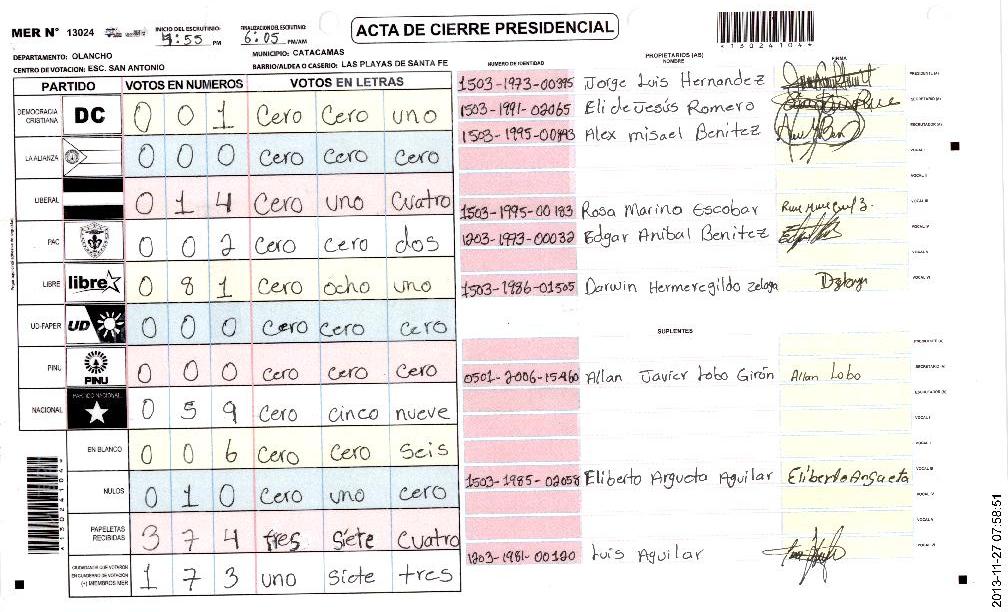 MER N° 13024
INICIO DEL ESCRUTINIO: 4:55 PM
FINALIZACION DEL ESCRUTINIO: 6:05 PM/AM
ACTA DE CIERRE PRESIDENCIAL
*13024104*
DEPARTAMENTO: OLANCHO
MUNICIPIO: CATACAMAS
CENTRO DE VOTACION: ESC. SAN ANTONIO
BARRIO/ALDEA O CASERIO: LAS PLAYAS DE SANTA FE
PARTIDO VOTOS EN NUMEROS VOTOS EN LETRAS
DEMOCRACIA CRISTIANA DC 0 0 1 Cero Cero uno
LA ALIANZA 0 0 0 Cero Cero Cero
LIBERAL 0 1 4 Cero uno Cuatro
PAC 0 0 2 Cero cero dos
LIBRE libre 0 8 1 Cero ocho uno
UD-FAPER UD 0 0 0 Cero Cero Cero
PINU PINU 0 0 0 Cero cero cero
NACIONAL PARTIDO NACIONAL 0 5 9 Cero cinco nueve
EN BLANCO 0 0 6 Cero Cero Seis
NULOS 0 1 0 Cero uno cero
PAPELETAS RECIBIDAS 3 7 4 tres siete Cuatro
CIUDADANOS QUE VOTARON EN CUADERNO DE VOTACION (+) MIEMBROS MER 1 7 3 uno Siete tres
*13024104*
NUMERO DE IDENTIDAD PROPIETARIOS (AS) NOMBRE FIRMA
1503-1973-00395 Jorge Luis Hernandez PRESIDENTE (A)
1503-1991-02065 Eli de Jesús Romero SECRETARIO (A)
1503-1995-00893 Alex misael Benitez ESCRUTADOR (A)
VOCAL I
VOCAL II
1503-1995-00183 Rosa Marino Escobar VOCAL III
1203-1973-00032 Edgar Anibal Benitez VOCAL IV
VOCAL V
1503-1986-01505 Darwin Hermeregildo Zelaya VOCAL VI
SUPLENTES
PRESIDENTE (A)
0501-2006-15460 Allan Javier Lobo Girón Allan Lobo SECRETARIO (A)
ESCRUTADOR (A)
VOCAL I
VOCAL II
1503-1985-02058 Eliberto Argueta Aguilar Eliberto Argueta VOCAL III
VOCAL IV
VOCAL V
1203-1981-00120 Luis Aguilar VOCAL VI
2013-11-27 07:58:51